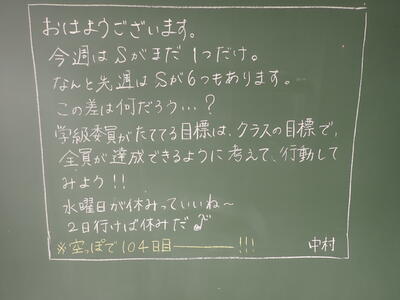 おはようございます。
今週はSがまだ1つだけ。
なんと先週はSが6つもあります。
この差は何だろう…?
学級委員がたててる目標は、クラスの目標で、
全員が達成できるように考えて、行動して
みよう!!
水曜日が休みっていいね～
2日行けば休みだ♪
※空っぽで104日目―――!!!
中村